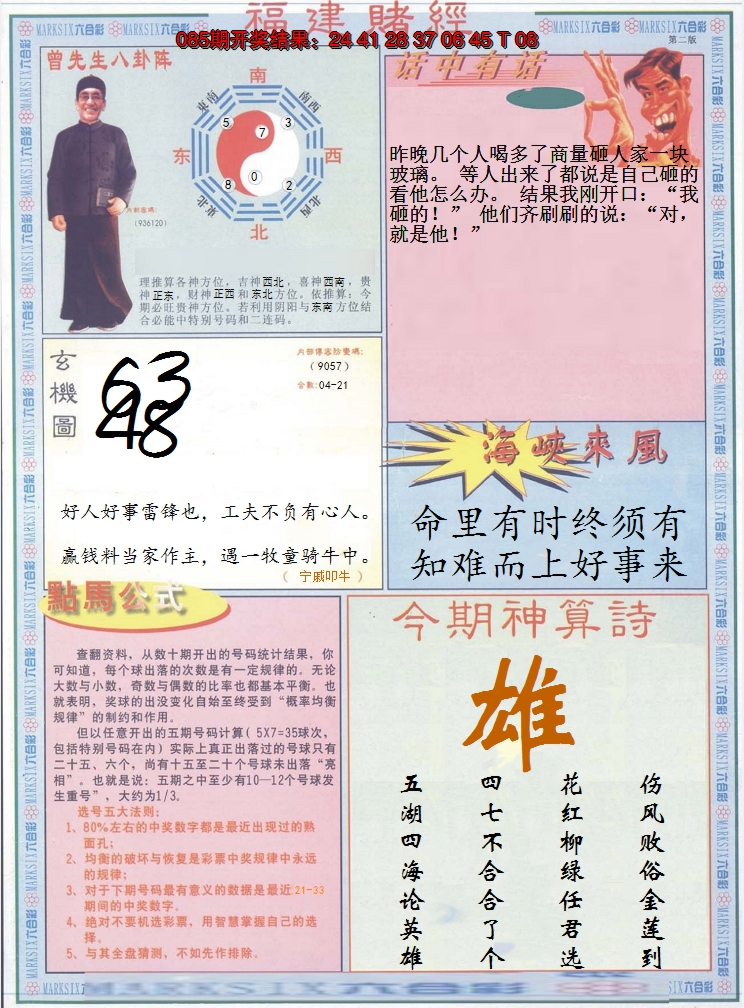 福建賭經
085期开奖结果：24 41 28 37 06 45 T 08
第二版
MARKSIX六合彩
曾先生八卦阵
南
东南
南西
5
7
3
东
西
8
0
2
东北
北西
北
内部密碼:
（936120）
理推算各神方位，吉神西北，喜神西南，贵
神正东，财神正西和东北方位。依推算：今
期必旺贵神方位。若利用阴阳与东南方位结
合必能中特别号码和二连码。
话中有话
昨晚几个人喝多了商量砸人家一块
玻璃。 等人出来了都说是自己砸的
看他怎么办。 结果我刚开口：“我
砸的！” 他们齐刷刷的说：“对，
就是他！”
玄機圖
63
48
（9057）
合数:04-21
好人好事雷锋也，工夫不负有心人。
赢钱料当家作主，遇一牧童骑牛中。
（ 宁戚叩牛 ）
海峽來風
命里有时终须有
知难而上好事来
點馬公式
查翻资料，从数十期开出的号码统计结果，你
可知道，每个球出落的次数是有一定规律的。无论
大数与小数，奇数与偶数的比率也都基本平衡。也
就表明，奖球的出没变化自始至终受到“概率均衡
规律”的制约和作用。
但以任意开出的五期号码计算( 5X7=35球次，
包括特别号码在内）实际上真正出落过的号球只有
二十五、六个，尚有十五至二十个号球未出落“亮
相”。也就是说：五期之中至少有10—12个号球发
生重号”，大约为1/3。
选号五大法则：
1、80%左右的中奖数字都是最近出现过的熟
面孔；
2、均衡的破坏与恢复是彩票中奖规律中永远
的规律；
3、对于下期号码最有意义的数据是最近21-33
期间的中奖数字。
4、绝对不要机选彩票，用智慧掌握自己的选
择。
5、与其全盘猜测，不如先作排除。
今期神算詩
雄
伤风败俗金莲到
花红柳绿任君选
四七不合合了个
五湖四海论英雄